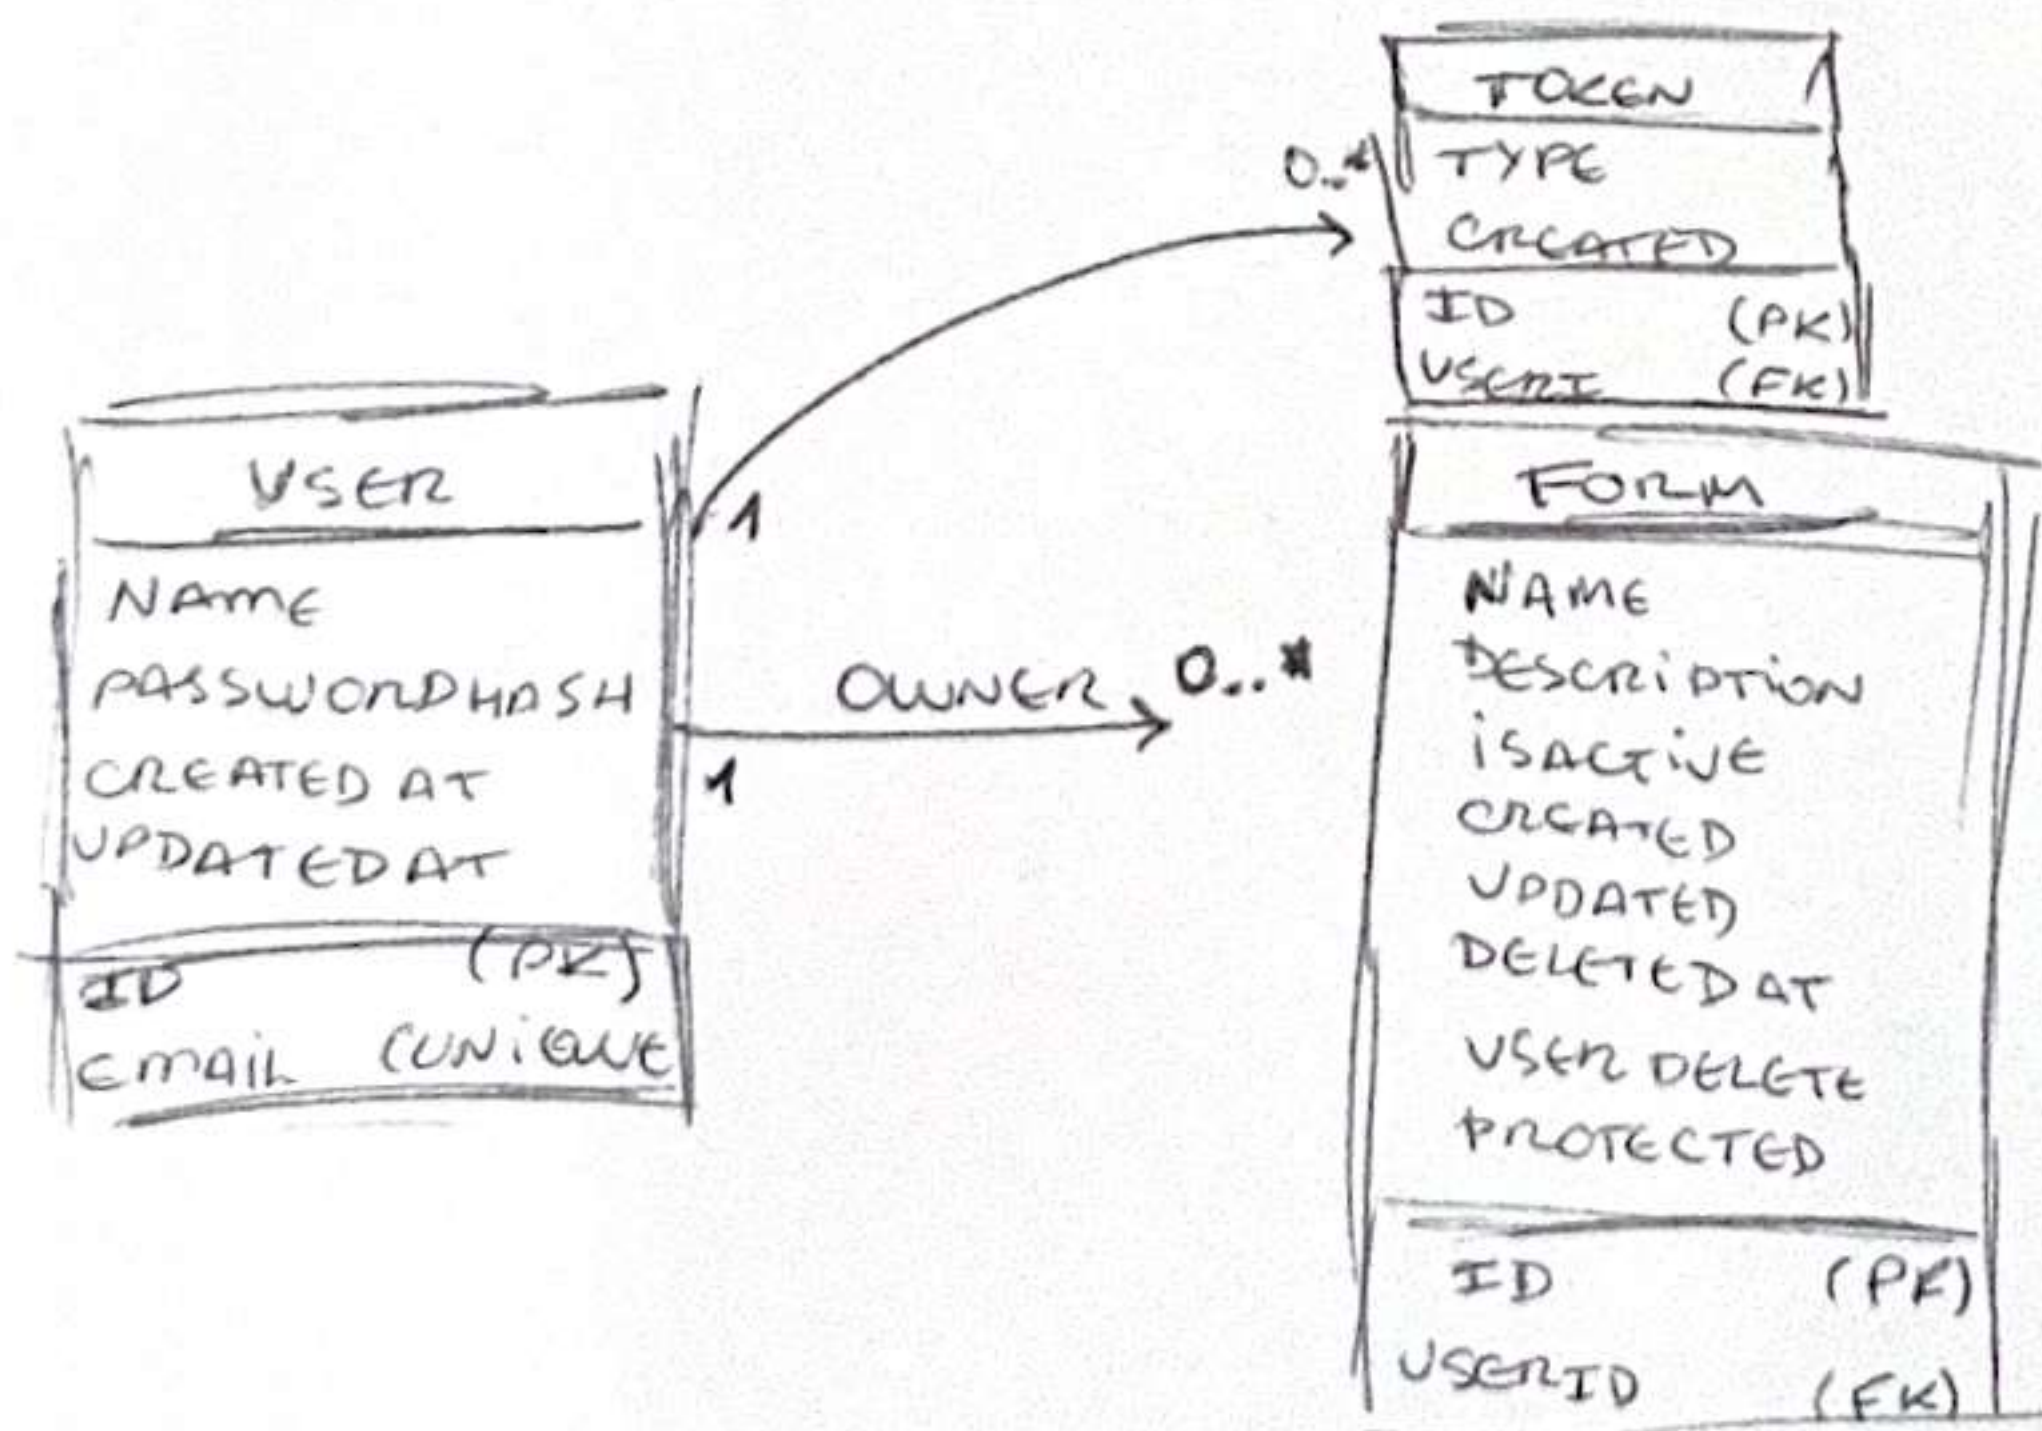 USER
NAME
PASSWORDHASH
CREATED AT
UPDATED AT
ID (PK)
EMAIL (UNIQUE
1
1
OWNER
0..*
0..*
TOKEN
TYPE
CREATED
ID (PK)
USERI (FK)
FORM
NAME
DESCRIPTION
iSACTiVE
CREATED
UPDATED
DELETED AT
USER DELETE
PROTECTED
ID (PK)
USERID (FK)